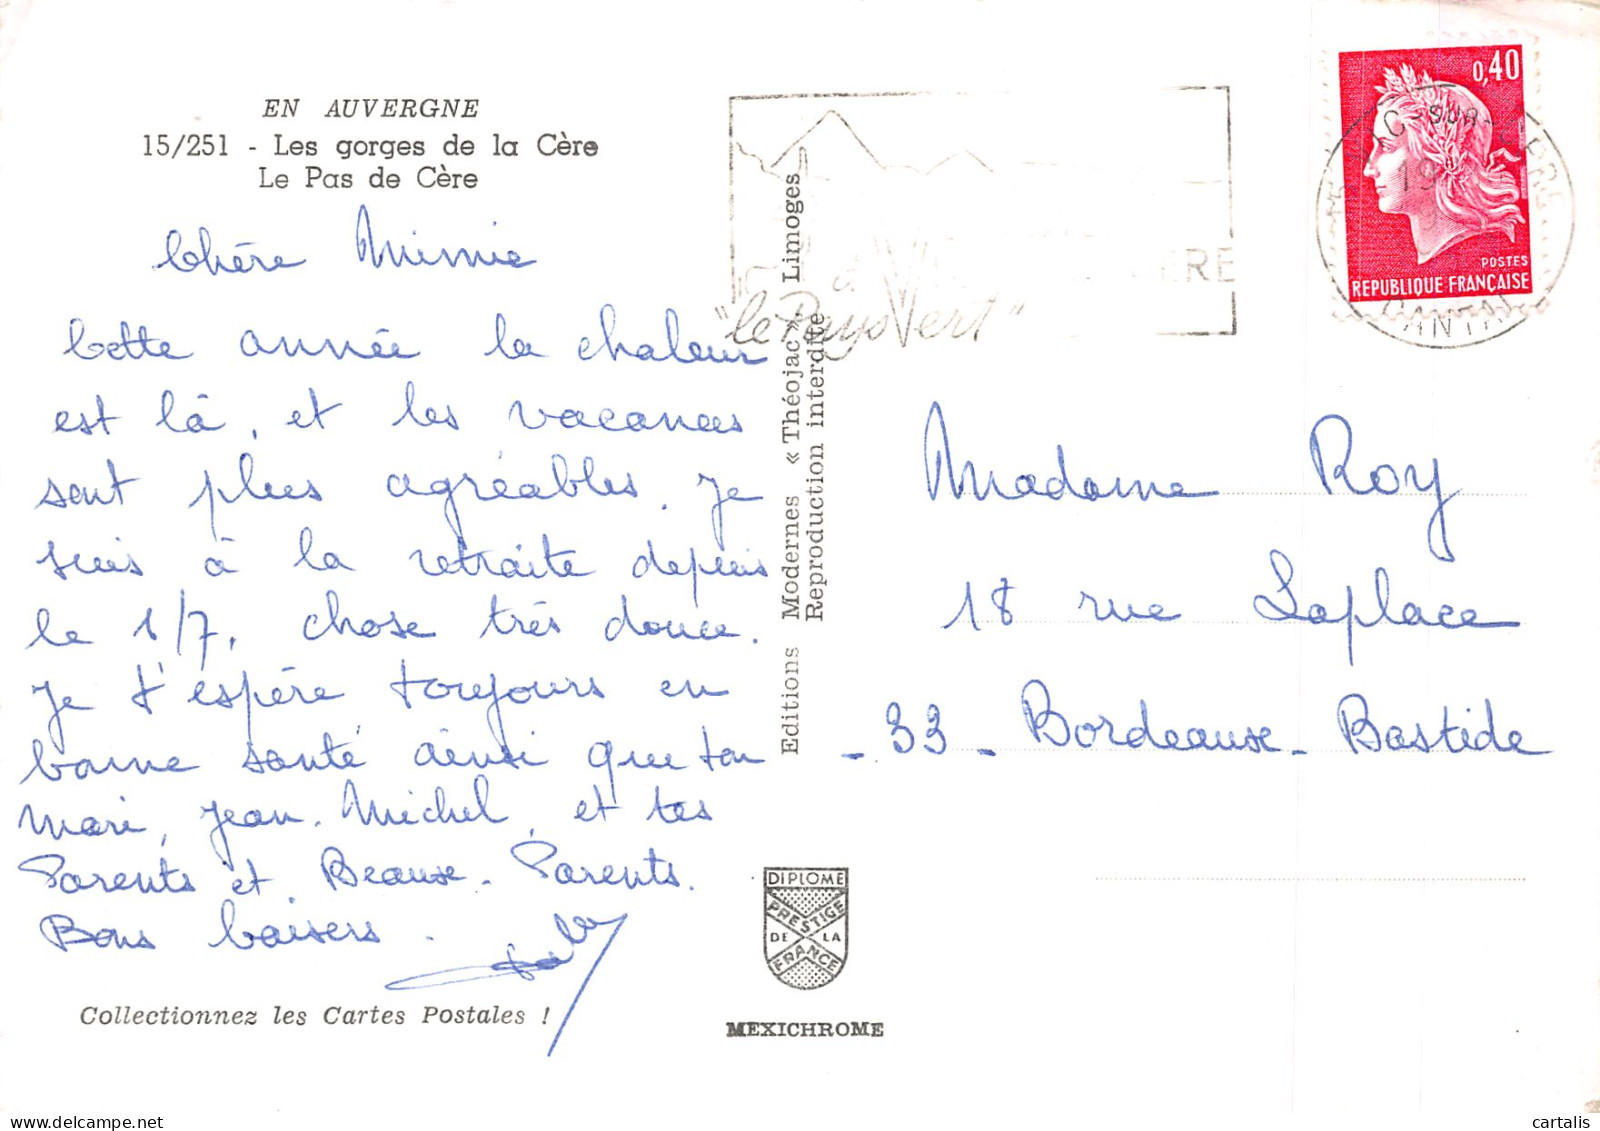 EN AUVERGNE
15/251 - Les gorges de la Cère
Le Pas de Cère
Chère Mimie
Cette année la chaleur
est là, et les vacances
sont plus agréables. Je
suis à la retraite depuis
le 1/7, chose très douce.
Je t'espère toujours en
bonne santé ainsi que ton
mari, Jean-Michel, et tes
Parents et Beaux-Parents.
Bons baisers.
Collectionnez les Cartes Postales !
"le Pays Vert"
Editions Modernes « Théojac » Limoges
Reproduction interdite
DIPLOME
PRESTIGE
DE LA
FRANCE
MEXICHROME
0,40
POSTES
REPUBLIQUE FRANÇAISE
VIC-SUR-CERE
19
CANTAL
Madame Roy
18 rue Laplace
- 33 - Bordeaux - Bastide
cartalis